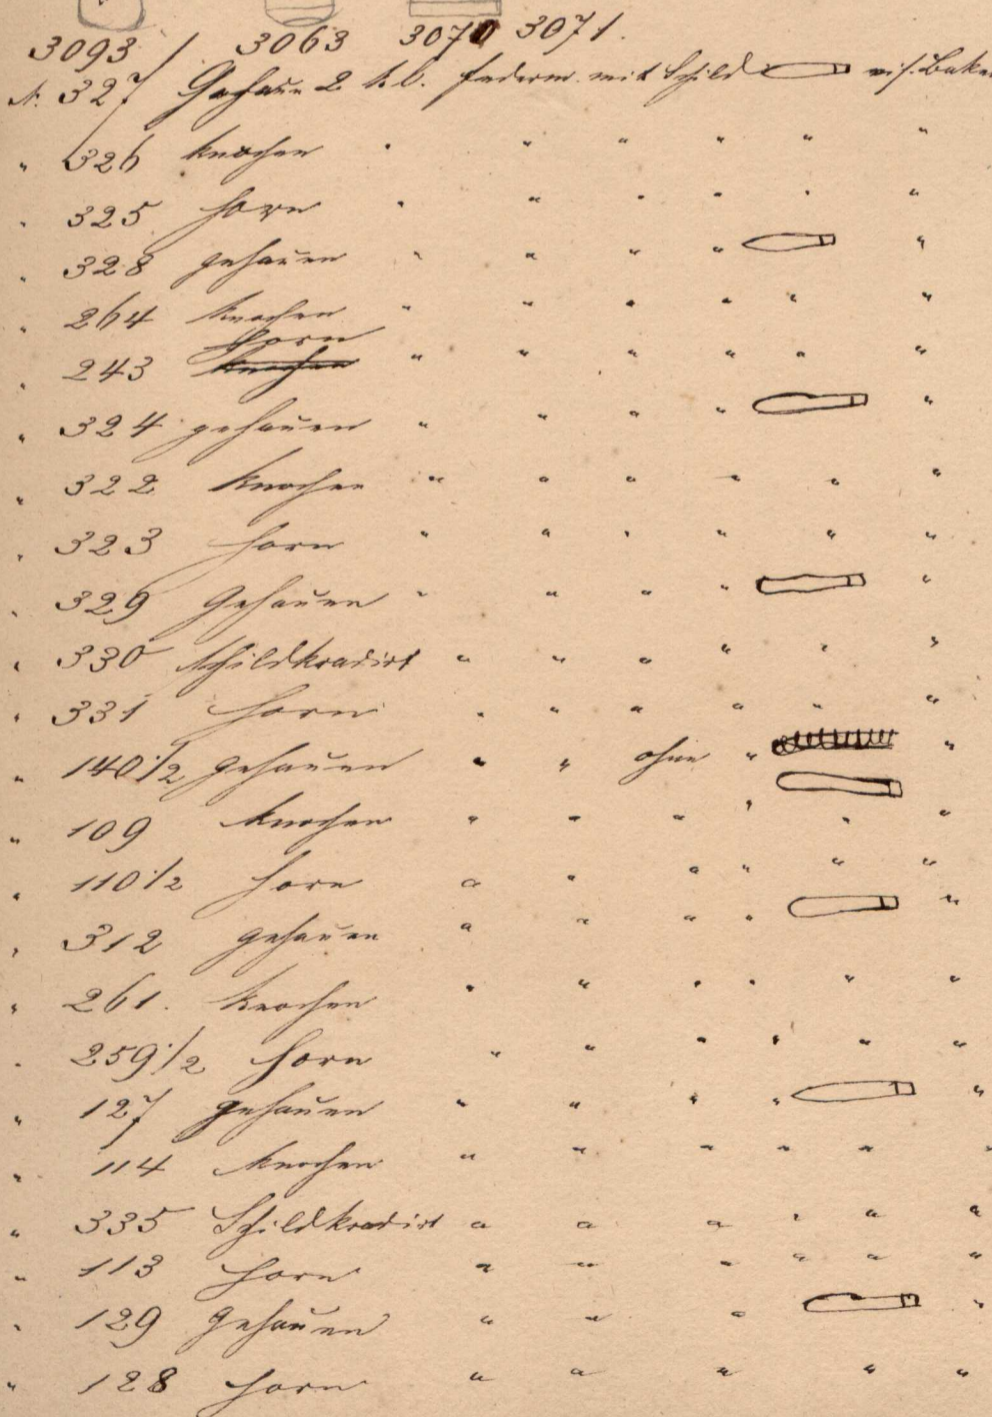 3093 / 3063 3070 3071.
N. 327 Gehauen 2 kl. federm. mit Schild
" 326 Knochen " " " " " "
" 325 Horn " " " " " "
" 328 gehauen " " " " "
" 264 Knochen " " " " " "
Horn
" 243 Knochen " " " " " "
" 324 gehauen " " " " "
" 322 Knochen " " " " " "
" 323 Horn " " " " " "
" 329 Gehauen " " " " "
" 330 Schildkradirt " " " " " "
" 331 Horn " " " " " "
" 140 1/2 gehauen " " ohne " "
" 109 Knochen " " " " " "
" 110 1/2 Horn " " " " " "
" 312 gehauen " " " " "
" 261. Knochen " " " " " "
" 259 1/2 Horn " " " " " "
" 127 gehauen " " " " "
" 114 Knochen " " " " " "
" 335 Schildkradirt " " " " " "
" 113 Horn " " " " " "
" 129 Gehauen " " " "
" 128 Horn " " " " "